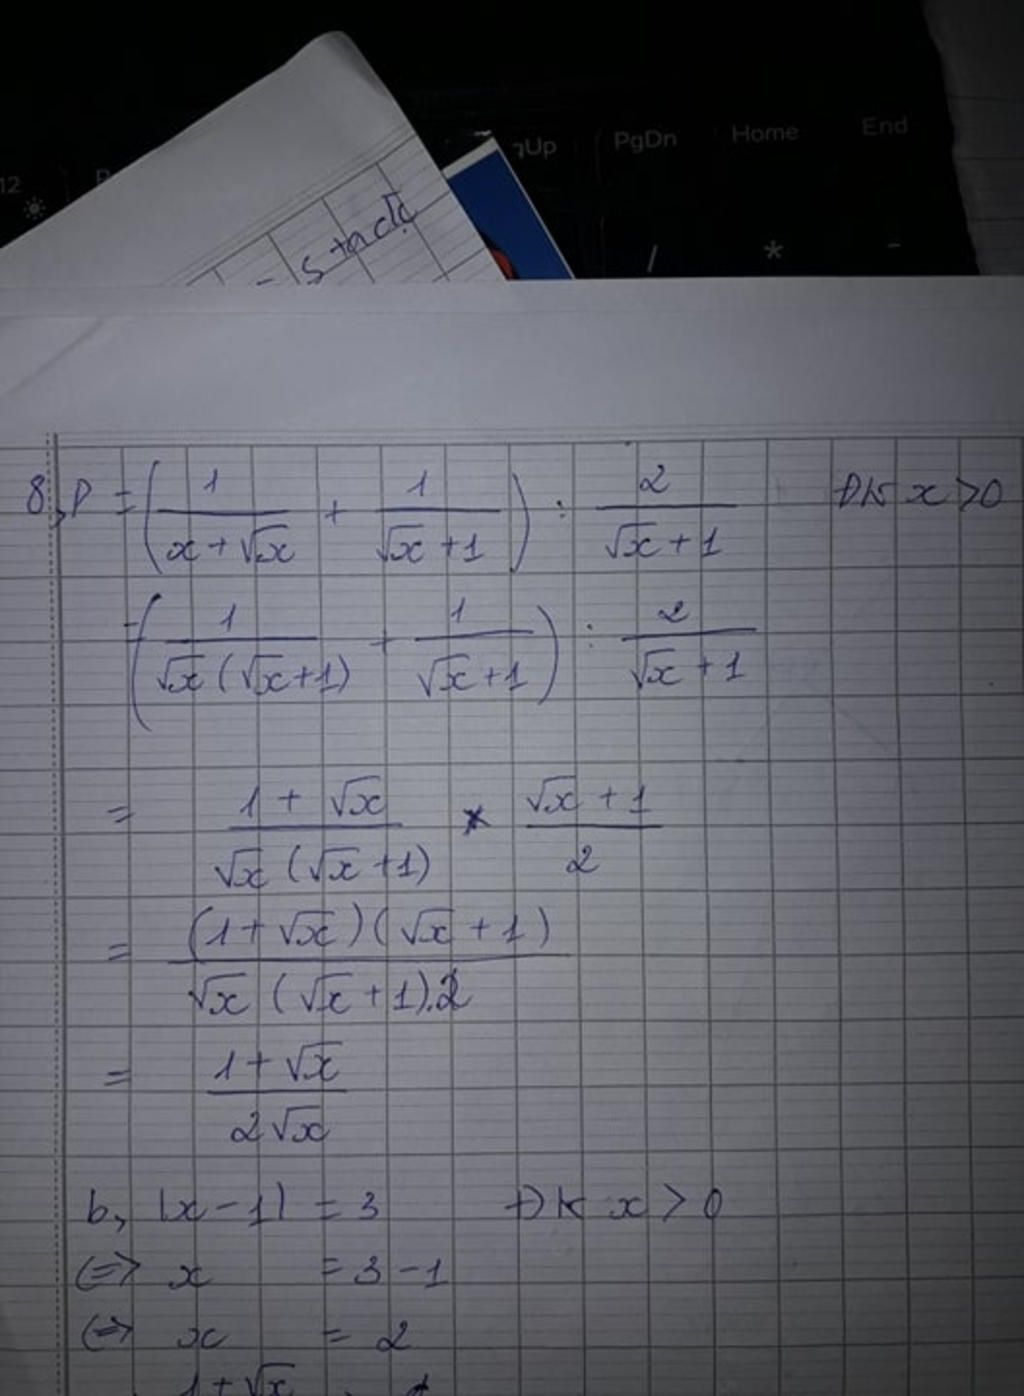 12
PgDn
Home
End
/
*
-
- stack
8, P = (1/(x + √x) + 1/(√x + 1)) : 2/(√x + 1) ĐK x > 0
= (1/(√x (√x + 1)) + 1/(√x + 1)) : 2/(√x + 1)
= (1 + √x)/(√x (√x + 1)) * (√x + 1)/2
= ((1 + √x)(√x + 1))/(√x (√x + 1).2)
= (1 + √x)/(2√x)
b, |x - 1| = 3 ĐK x > 0
<=> x = 3 - 1
<=> x = 2
1 + √x